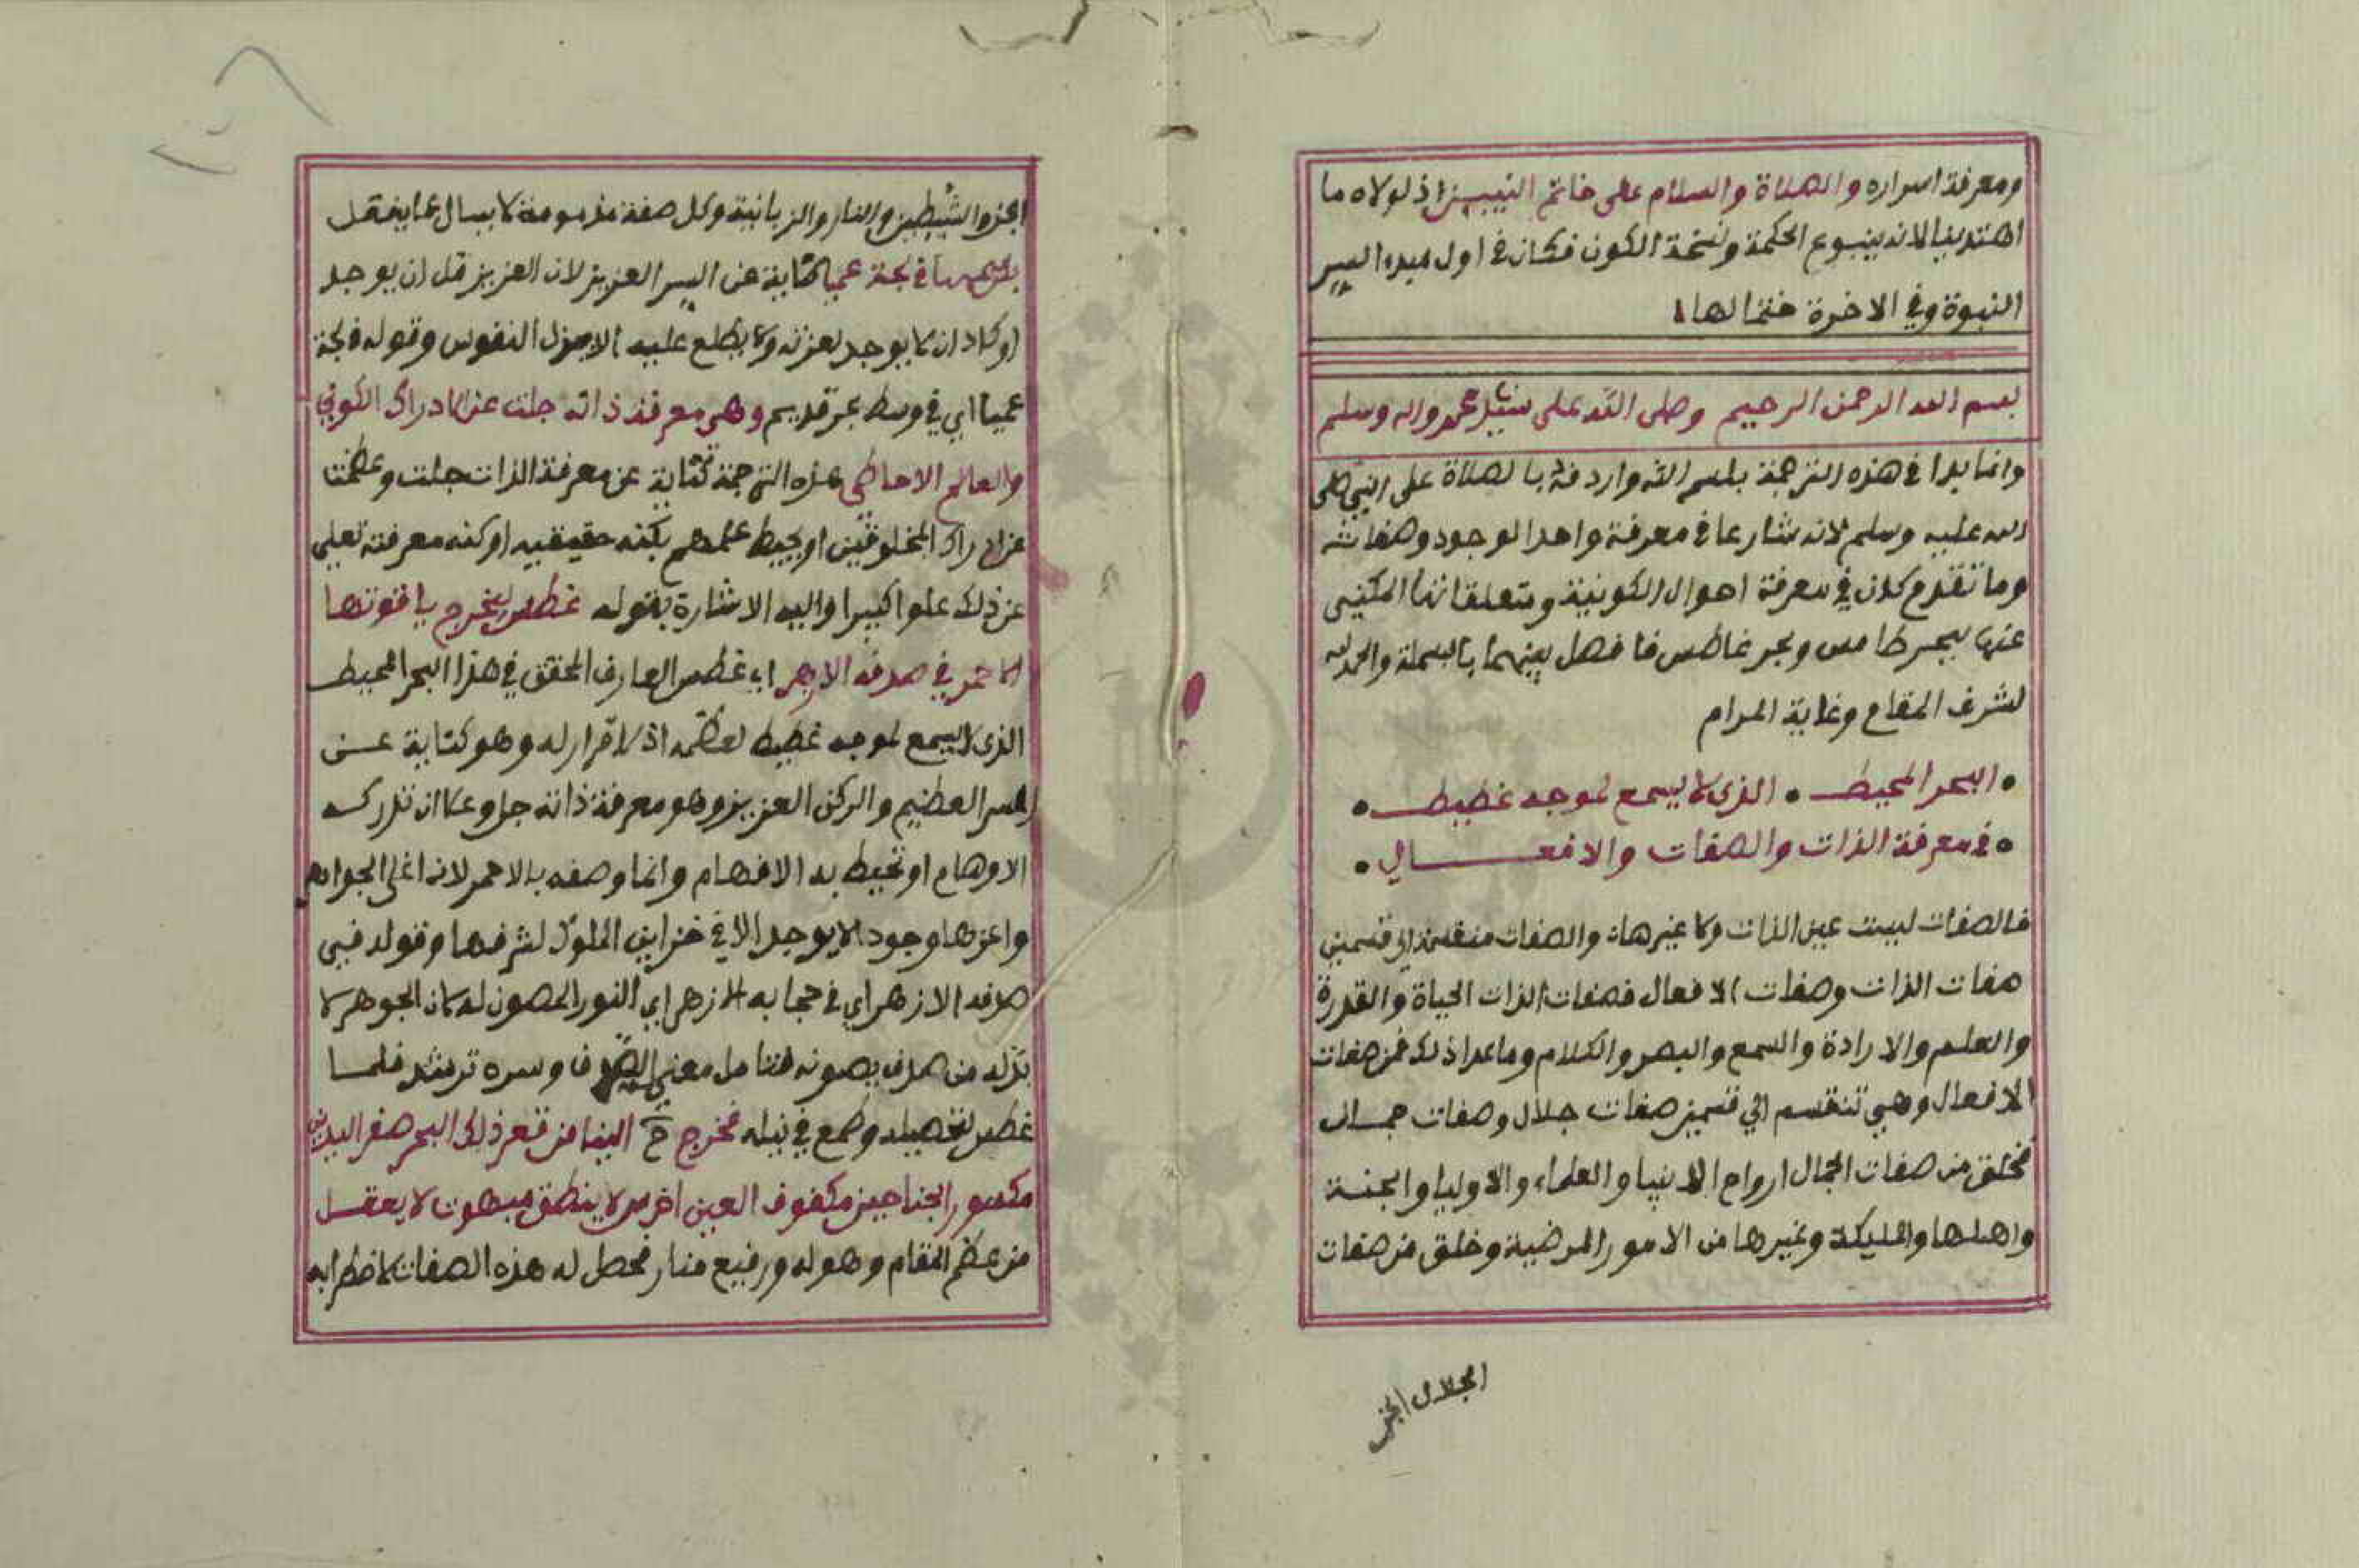 ومعرفة اسراره والصلاة والسلام على خاتم النبيين اذ لولاه ما
اهتدينا لانه ينبوع الحكمة ونسخة الكون فكان في اول مبدء السر
النبوة وفي الاخرة ختما لها
بسم الله الرحمن الرحيم وصلى الله على سيدنا محمد واله وسلم
وانما بدا في هذه الترجمة باسم الله واردفه بالصلاة على النبي صلى
الله عليه وسلم لانه شارعا في معرفة واحد الوجود وصفاته
وما تقدم كان في معرفة احوال الكونية ومتعلقاتها المكنى
عنها ببحر طامس وبحر غاطس فافصل بينهما بالبسملة والحمد لله
لشرف المقام وغاية المرام
البحر المحيط • الذي لا يسمع لموجه غطيط •
• في معرفة الذات والصفات والافعال •
فالصفات ليست عين الذات ولا غيرها والصفات منقسمة الى قسمين
صفات الذات وصفات الافعال فصفات الذات الحياة والقدرة
والعلم والارادة والسمع والبصر والكلام وما عدا ذلك فمن صفات
الافعال وهي تنقسم الى قسمين صفات جلال وصفات جمال
فخلق من صفات الجمال ارواح الانبيا والعلماء والاوليا والجنة
واهلها والمليكة وغيرها من الامور المرضية وخلق من صفات
الجلال الجن
الجن والشيطين والنار والزبانية وكل صفة مذمومة لا يسال عما يفعل
في لجة عميا كناية عن السر العزيز لان العزيز قل ان يوجد
او كاد ان لا يوجد لعزته ولا يطلع عليه الا ببذل النفوس وقوله في لجة
عميا اي في وسط بحر قديم وهي معرفة ذاته جلت عن الادراك الكوني
والعالم الاحاطي هذه الترجمة كناية عن معرفة الذات جلت وعظمت
عن ادراك المخلوقين او يحيط علمهم بكنه حقيقيه او كنه معرفته تعلى
عن ذلك علوا كبيرا واليه الاشارة بقوله غطس ليخرج ياقوتها
الاحمر في صدفه الازهر اي غطس العارف المحقق في هذا البحر المحيط
الذي لا يسمع لموجه غطيط لعظمه اذ لا قرار له وهو كناية عن
السر العظيم والركن العزيز وهو معرفة ذاته جل وعلا ان تدركه
الاوهام او تحيط به الافهام وانما وصفه بالاحمر لانه اغلى الجواهر
واعزها وجودا لا يوجد الا في خزاين الملوك لشرفها وقوله في
صدفه الازهر اي في حجابه الازهر اي النور المصون له كان الجوهر لا
بد له من صدف يصونه فتامل معنى الصدف وسره ترشد فلما
غطس لتحصيله وطمع في نيله فخرج الينا من قعر ذلك البحر صفر اليدين
مكسور الجناحين مكفوف العين اخرس لا ينطق مبهوت لا يعقل
من عظم المقام وهوله ورفيع منار فحصل له هذه الصفات لاضطرابه